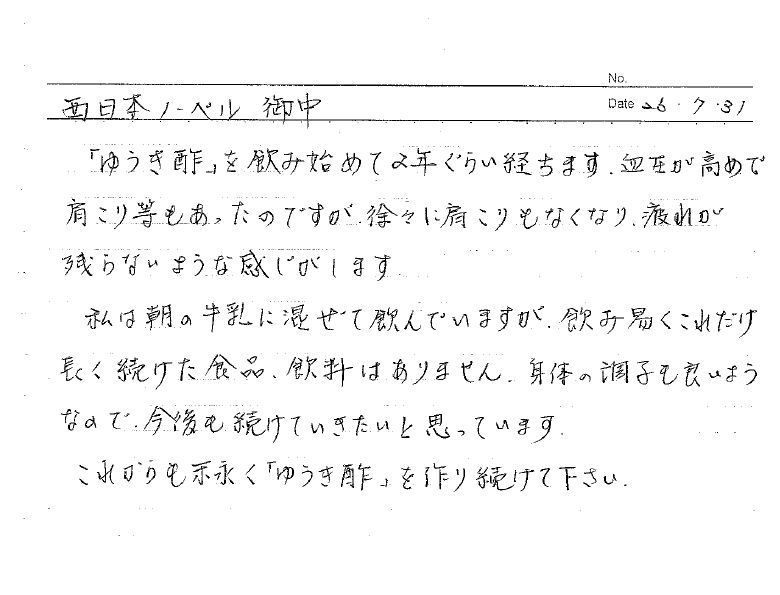 No.
西日本ノーベル 御中
Date 26・7・31
「ゆうき酢」を飲み始めて2年ぐらい経ちます.血圧が高めで
肩こり等もあったのですが.徐々に肩こりもなくなり、疲れが
残らないような感じがします.
私は朝の牛乳に混ぜて飲んでいますが.飲み易くこれだけ
長く続けた食品、飲料はありません.身体の調子も良いよう
なので.今後も続けていきたいと思っています.
これからも末永く「ゆうき酢」を作り続けて下さい.